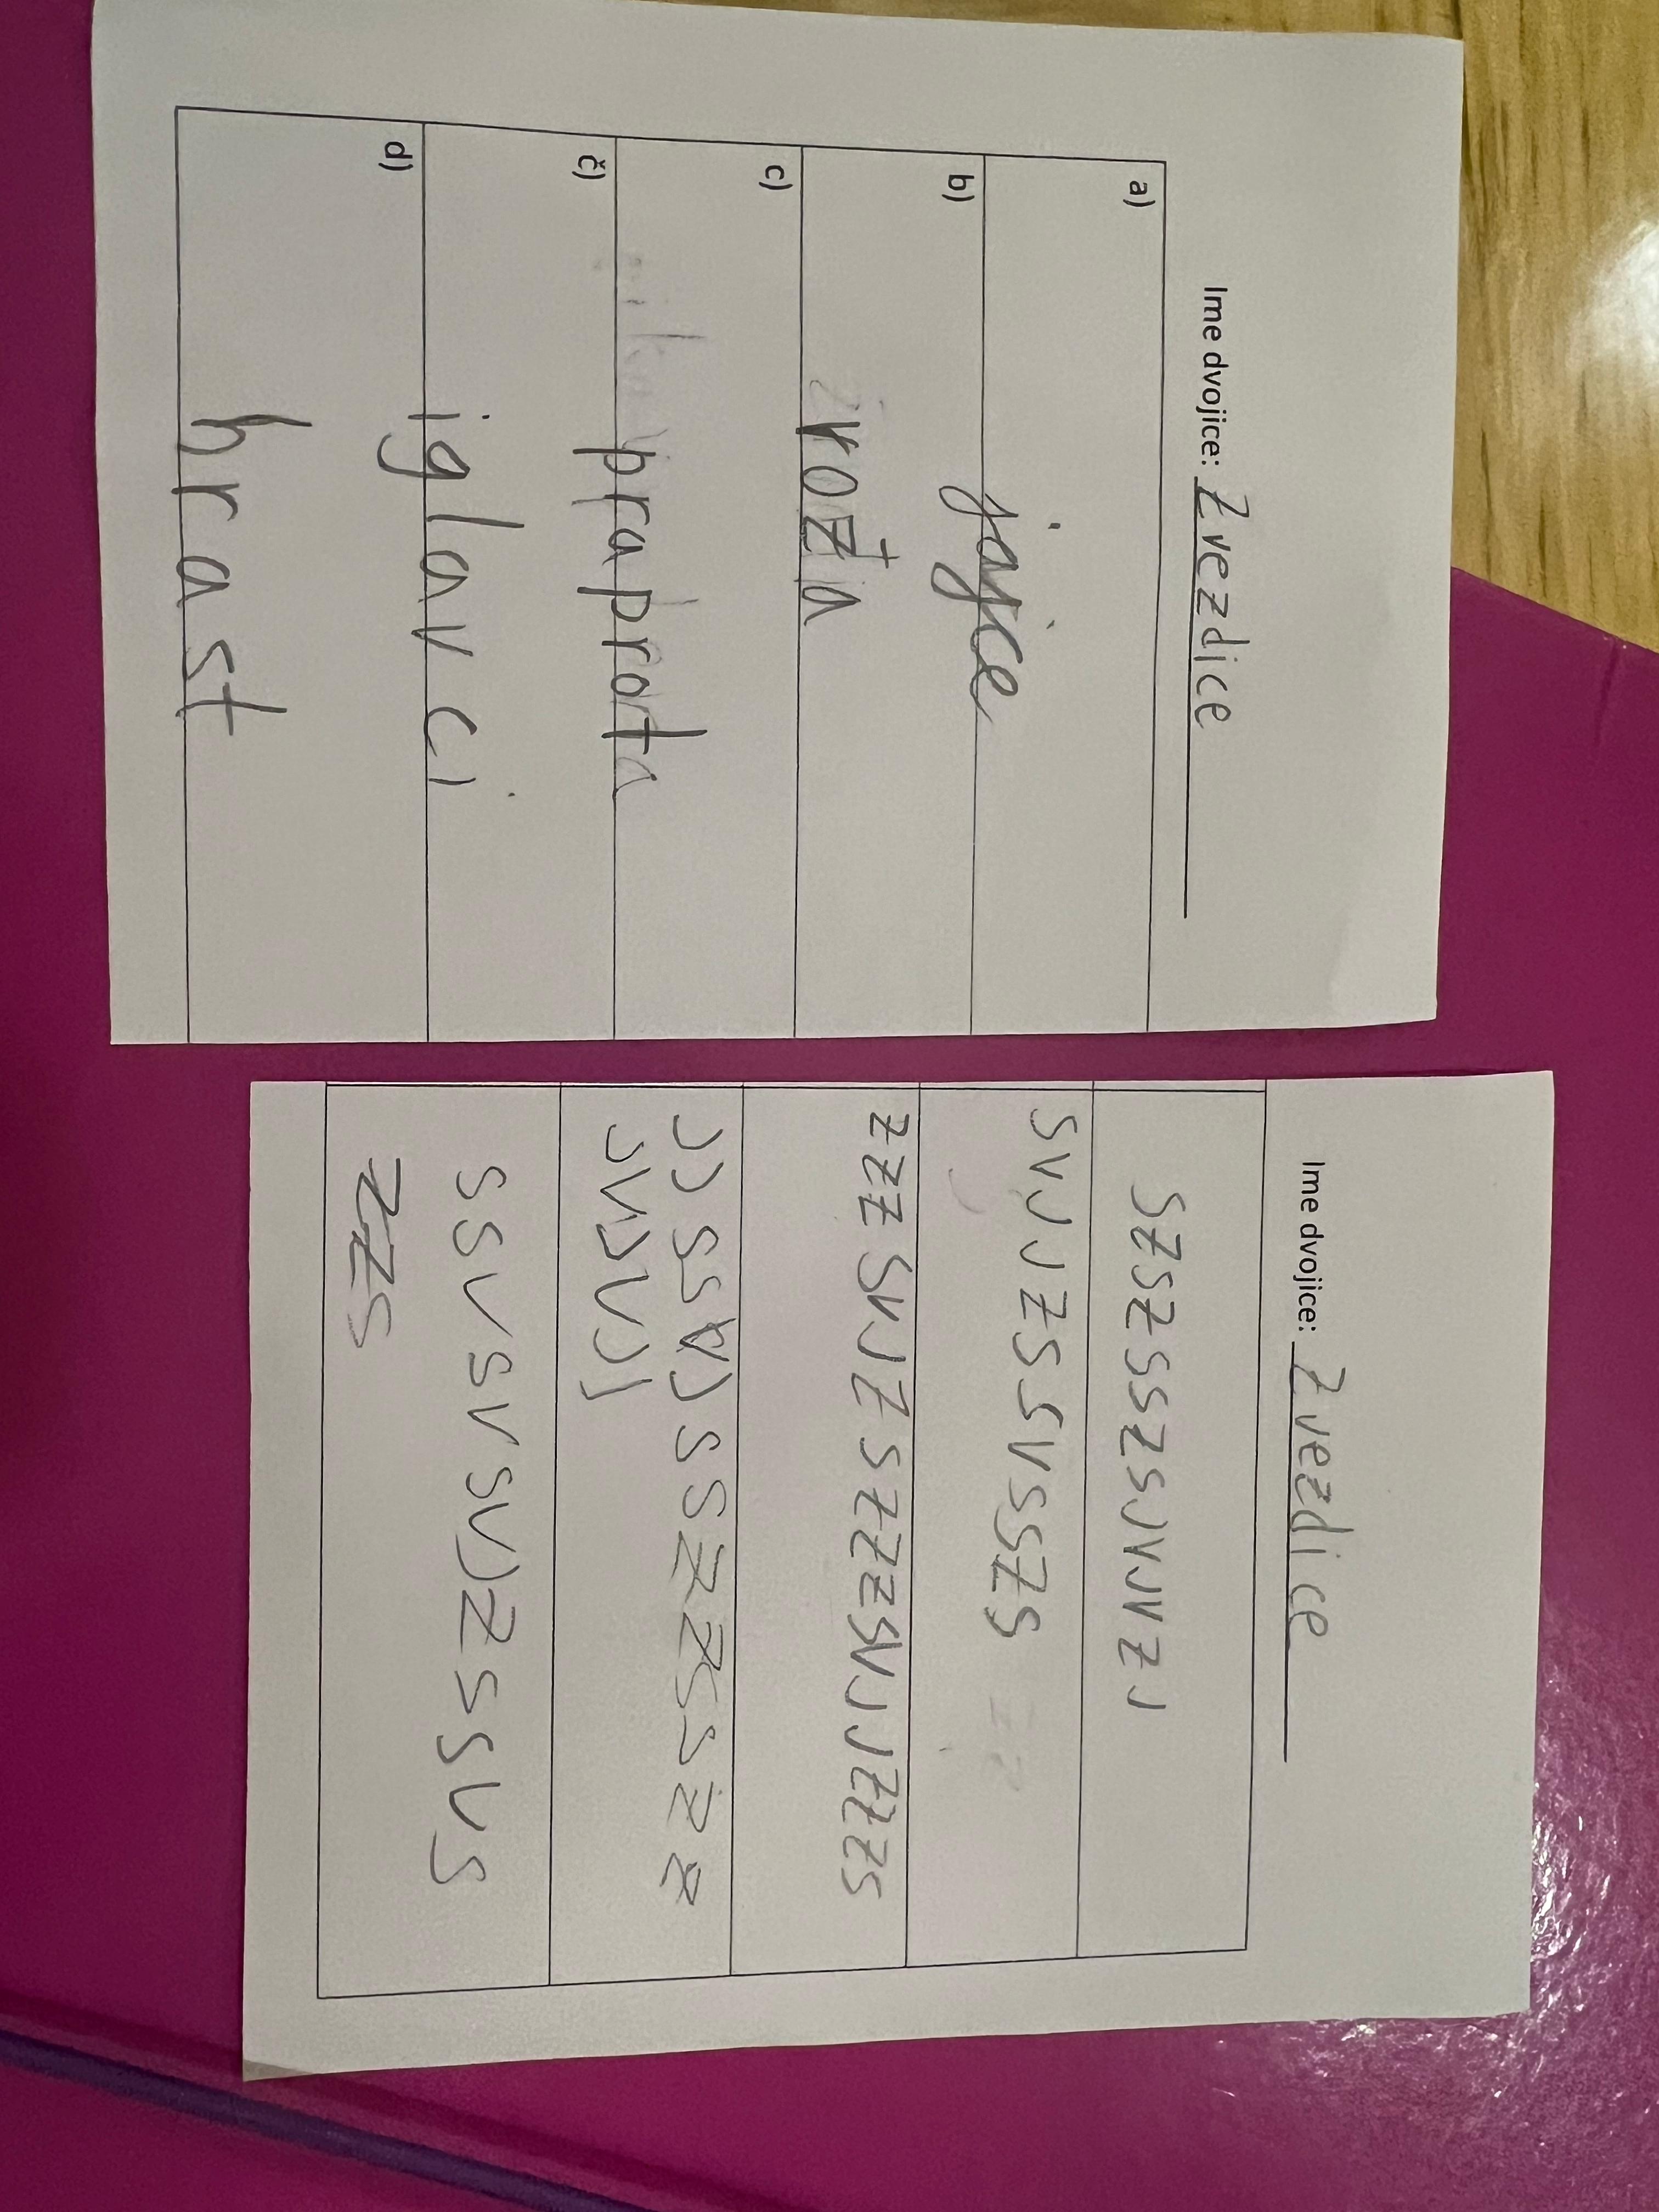 Ime dvojice: Zvezdice
a)
jajce
b)
vroža
c)
praprota
č)
iglavci
d)
hrast
Ime dvojice: Zvezdice
SZSZSSZSJVJVZJ
SVJJZSSVSSZS
ZZZSVJZSZZZSVJJZZZS
JJSSVJSSZZSSZZ
JVJVJJ
SSVSVSVJZSSVS
ZZS